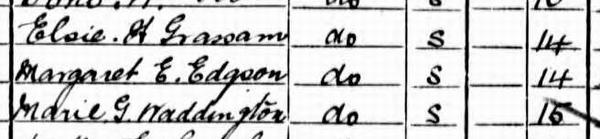 Elsie. H Grassam do S 14
Margaret E. Edgson do S 14
Marie G. Waddington do S 15